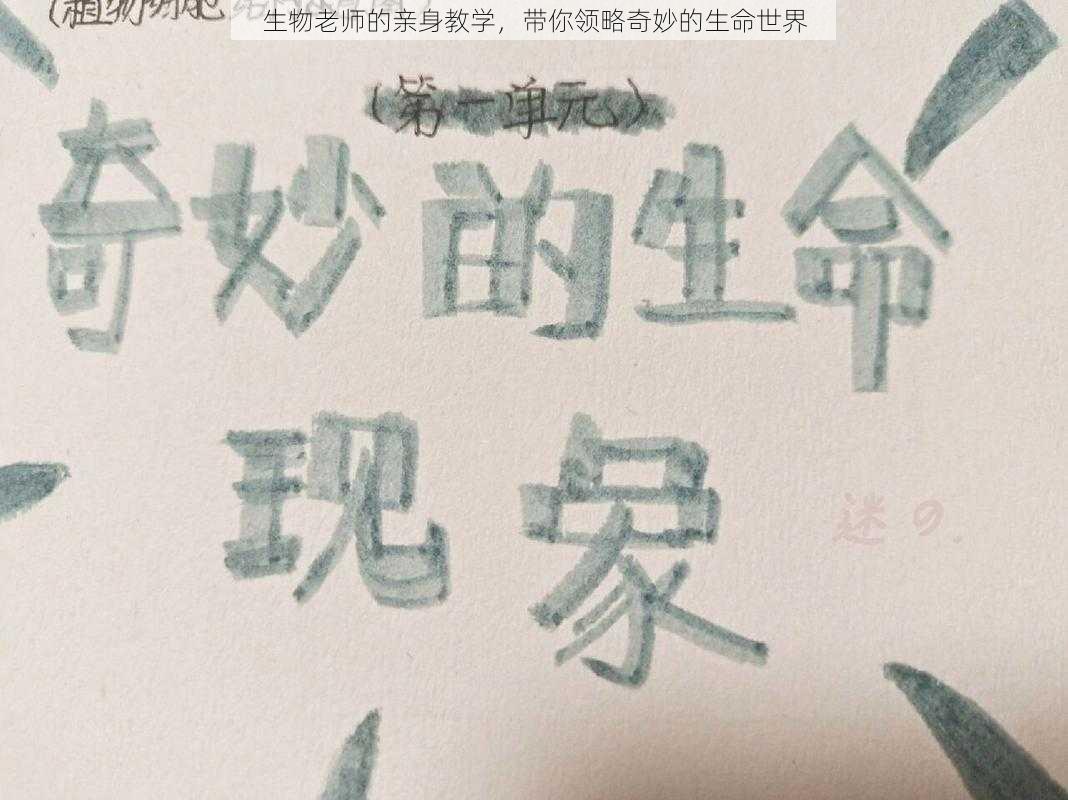 生物老师的亲身教学，带你领略奇妙的生命世界
(植物细胞
（第一单元）
奇妙的生命
现象
迷の.